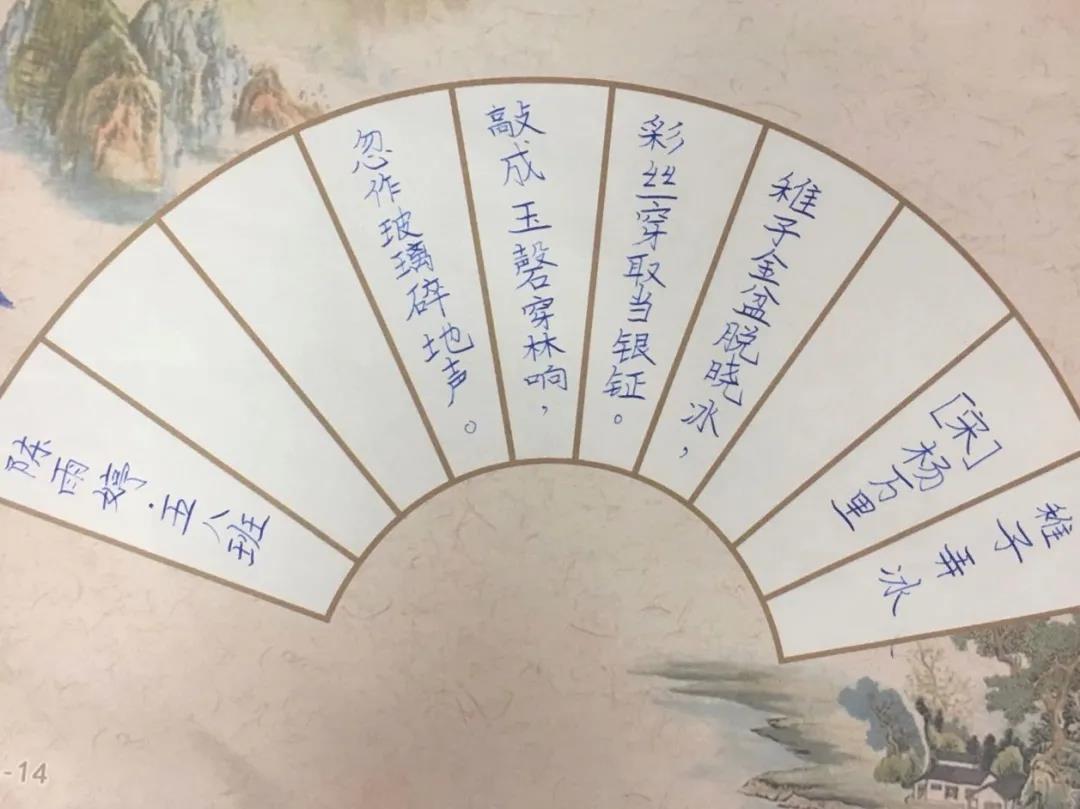 稚子弄冰
[宋]杨万里
稚子金盆脱晓冰，
彩丝穿取当银钲。
敲成玉磬穿林响，
忽作玻璃碎地声。
陈雨婷·五八班
-14